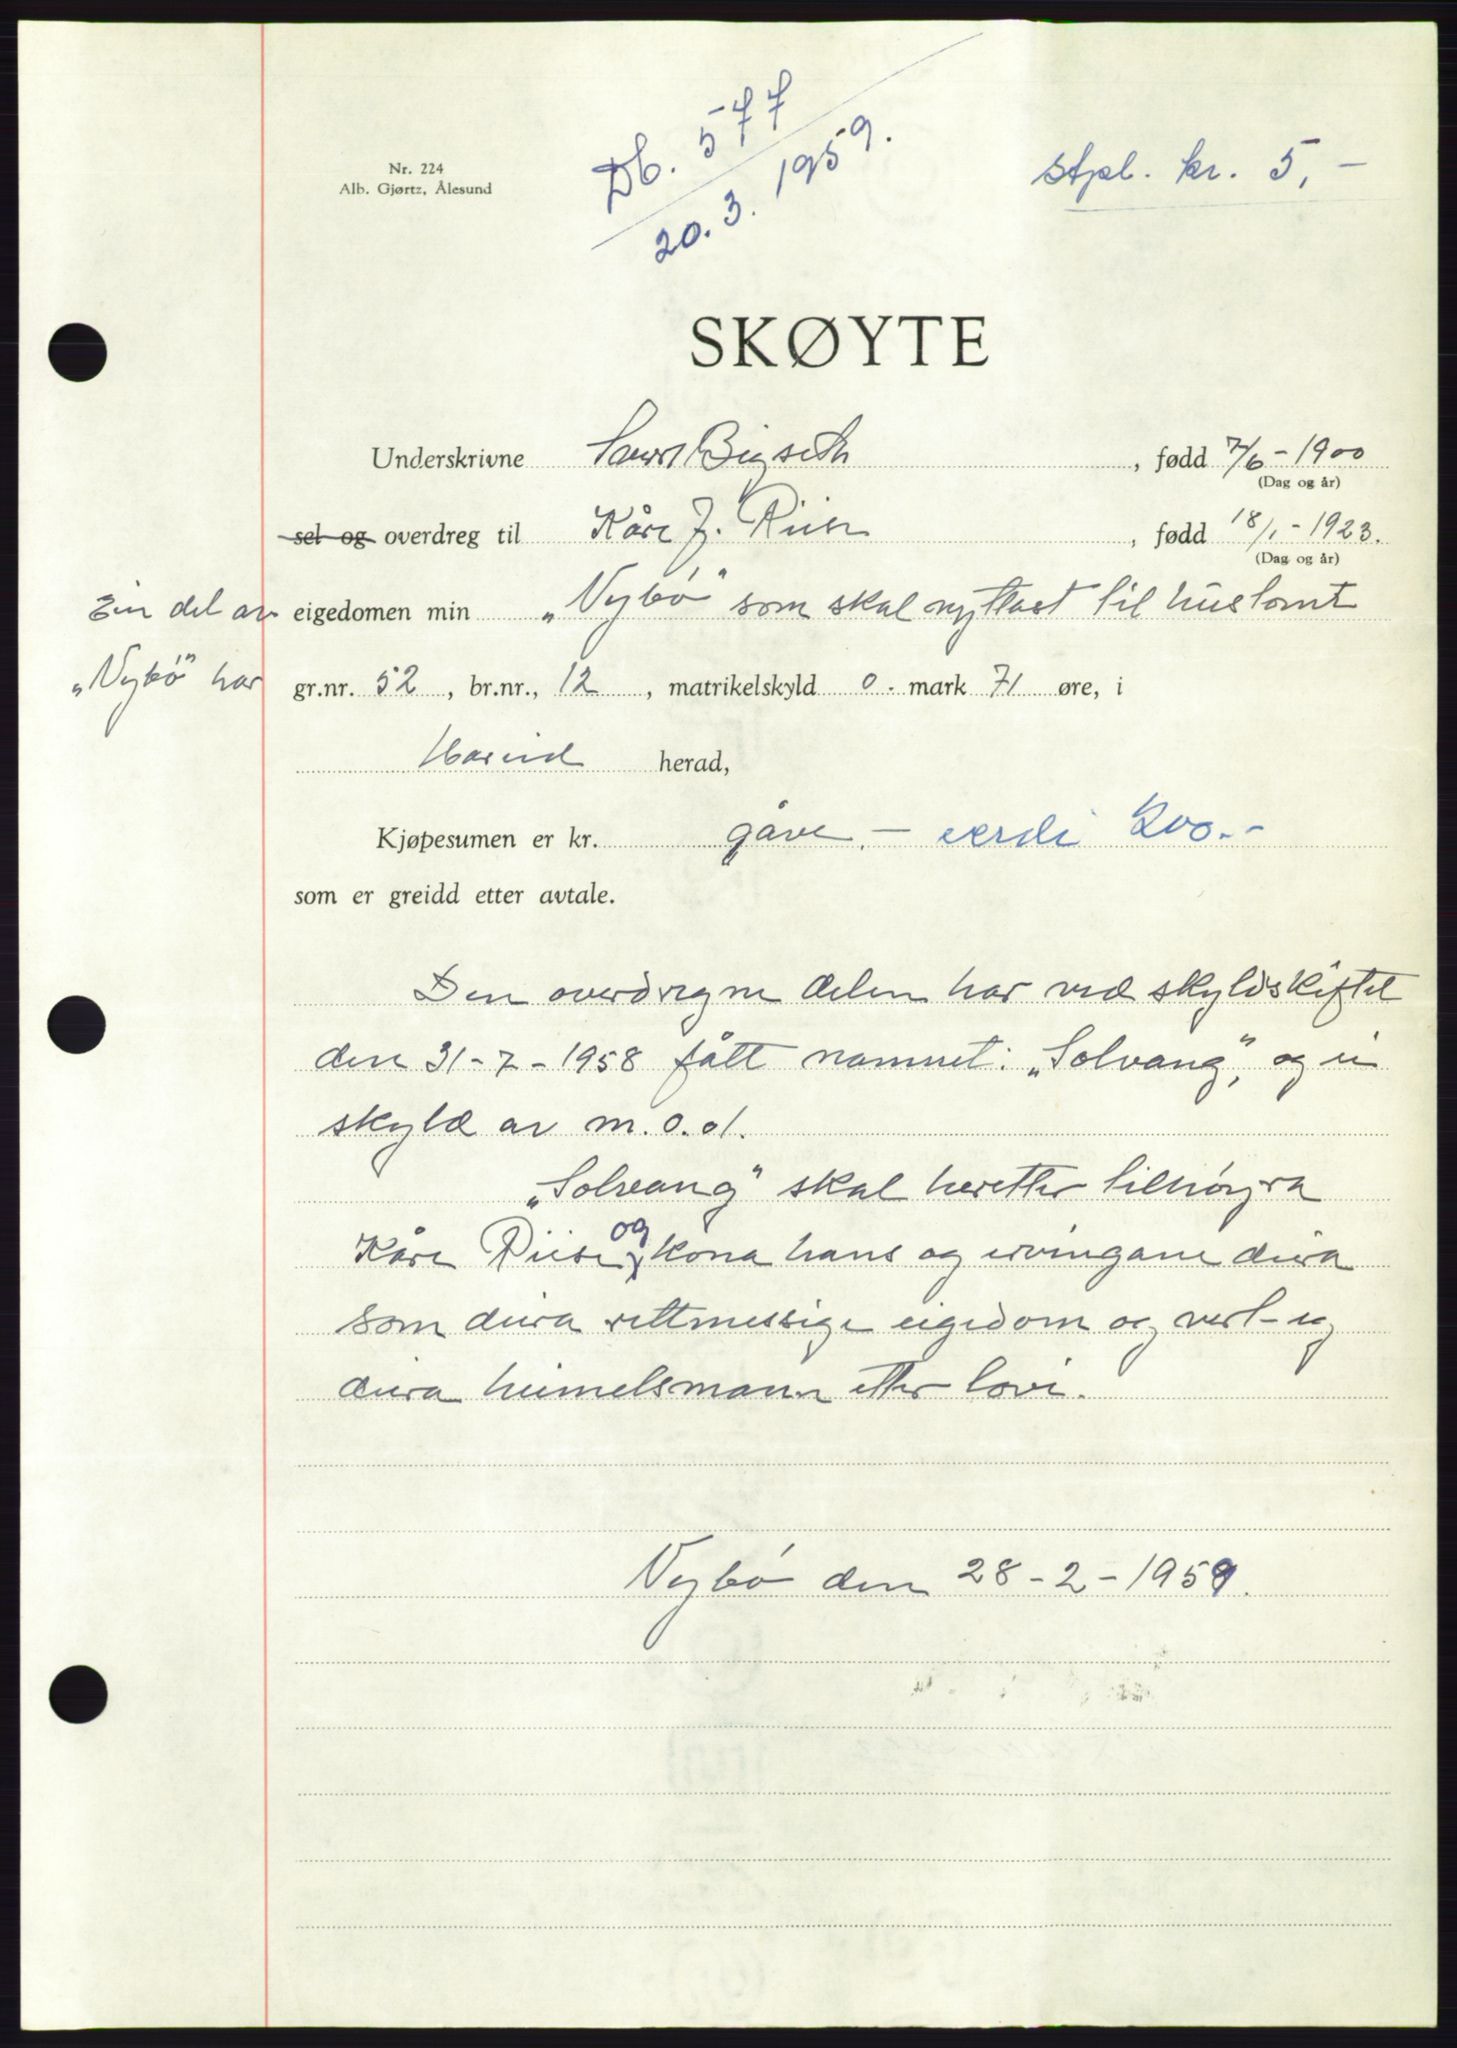 Db. 577
20. 3. 1959.
Stpl. kr. 5,-
Nr. 224
Alb. Gjørtz, Ålesund
SKØYTE
Underskrivne Bigseth, fødd 7/6 - 1900
(Dag og år)
sel og overdreg til Kåre J. Riise, fødd 18/1 - 1923.
(Dag og år)
Ein del av eigedomen min „Nybø" som skal nyttast til hustomt
„Nybø" har gr.nr. 52, br.nr., 12, matrikelskyld 0. mark 71 øre, i
Hareid herad,
Kjøpesumen er kr. gåve. - verdi 200.-
som er greidd etter avtale.
Den overdregne delen har ved skyldskiftet
den 31-7-1958 fått namnet: „Solvang", og ei
skyld av m. 0.01.
„Solvang" skal heretter tilhøyra
Kåre Riise og kona hans og ervingane deira
som deira rettmessige eigedom og vert eg
deira heimelsmann etter lovi.
Nybø den 28-2-1959.